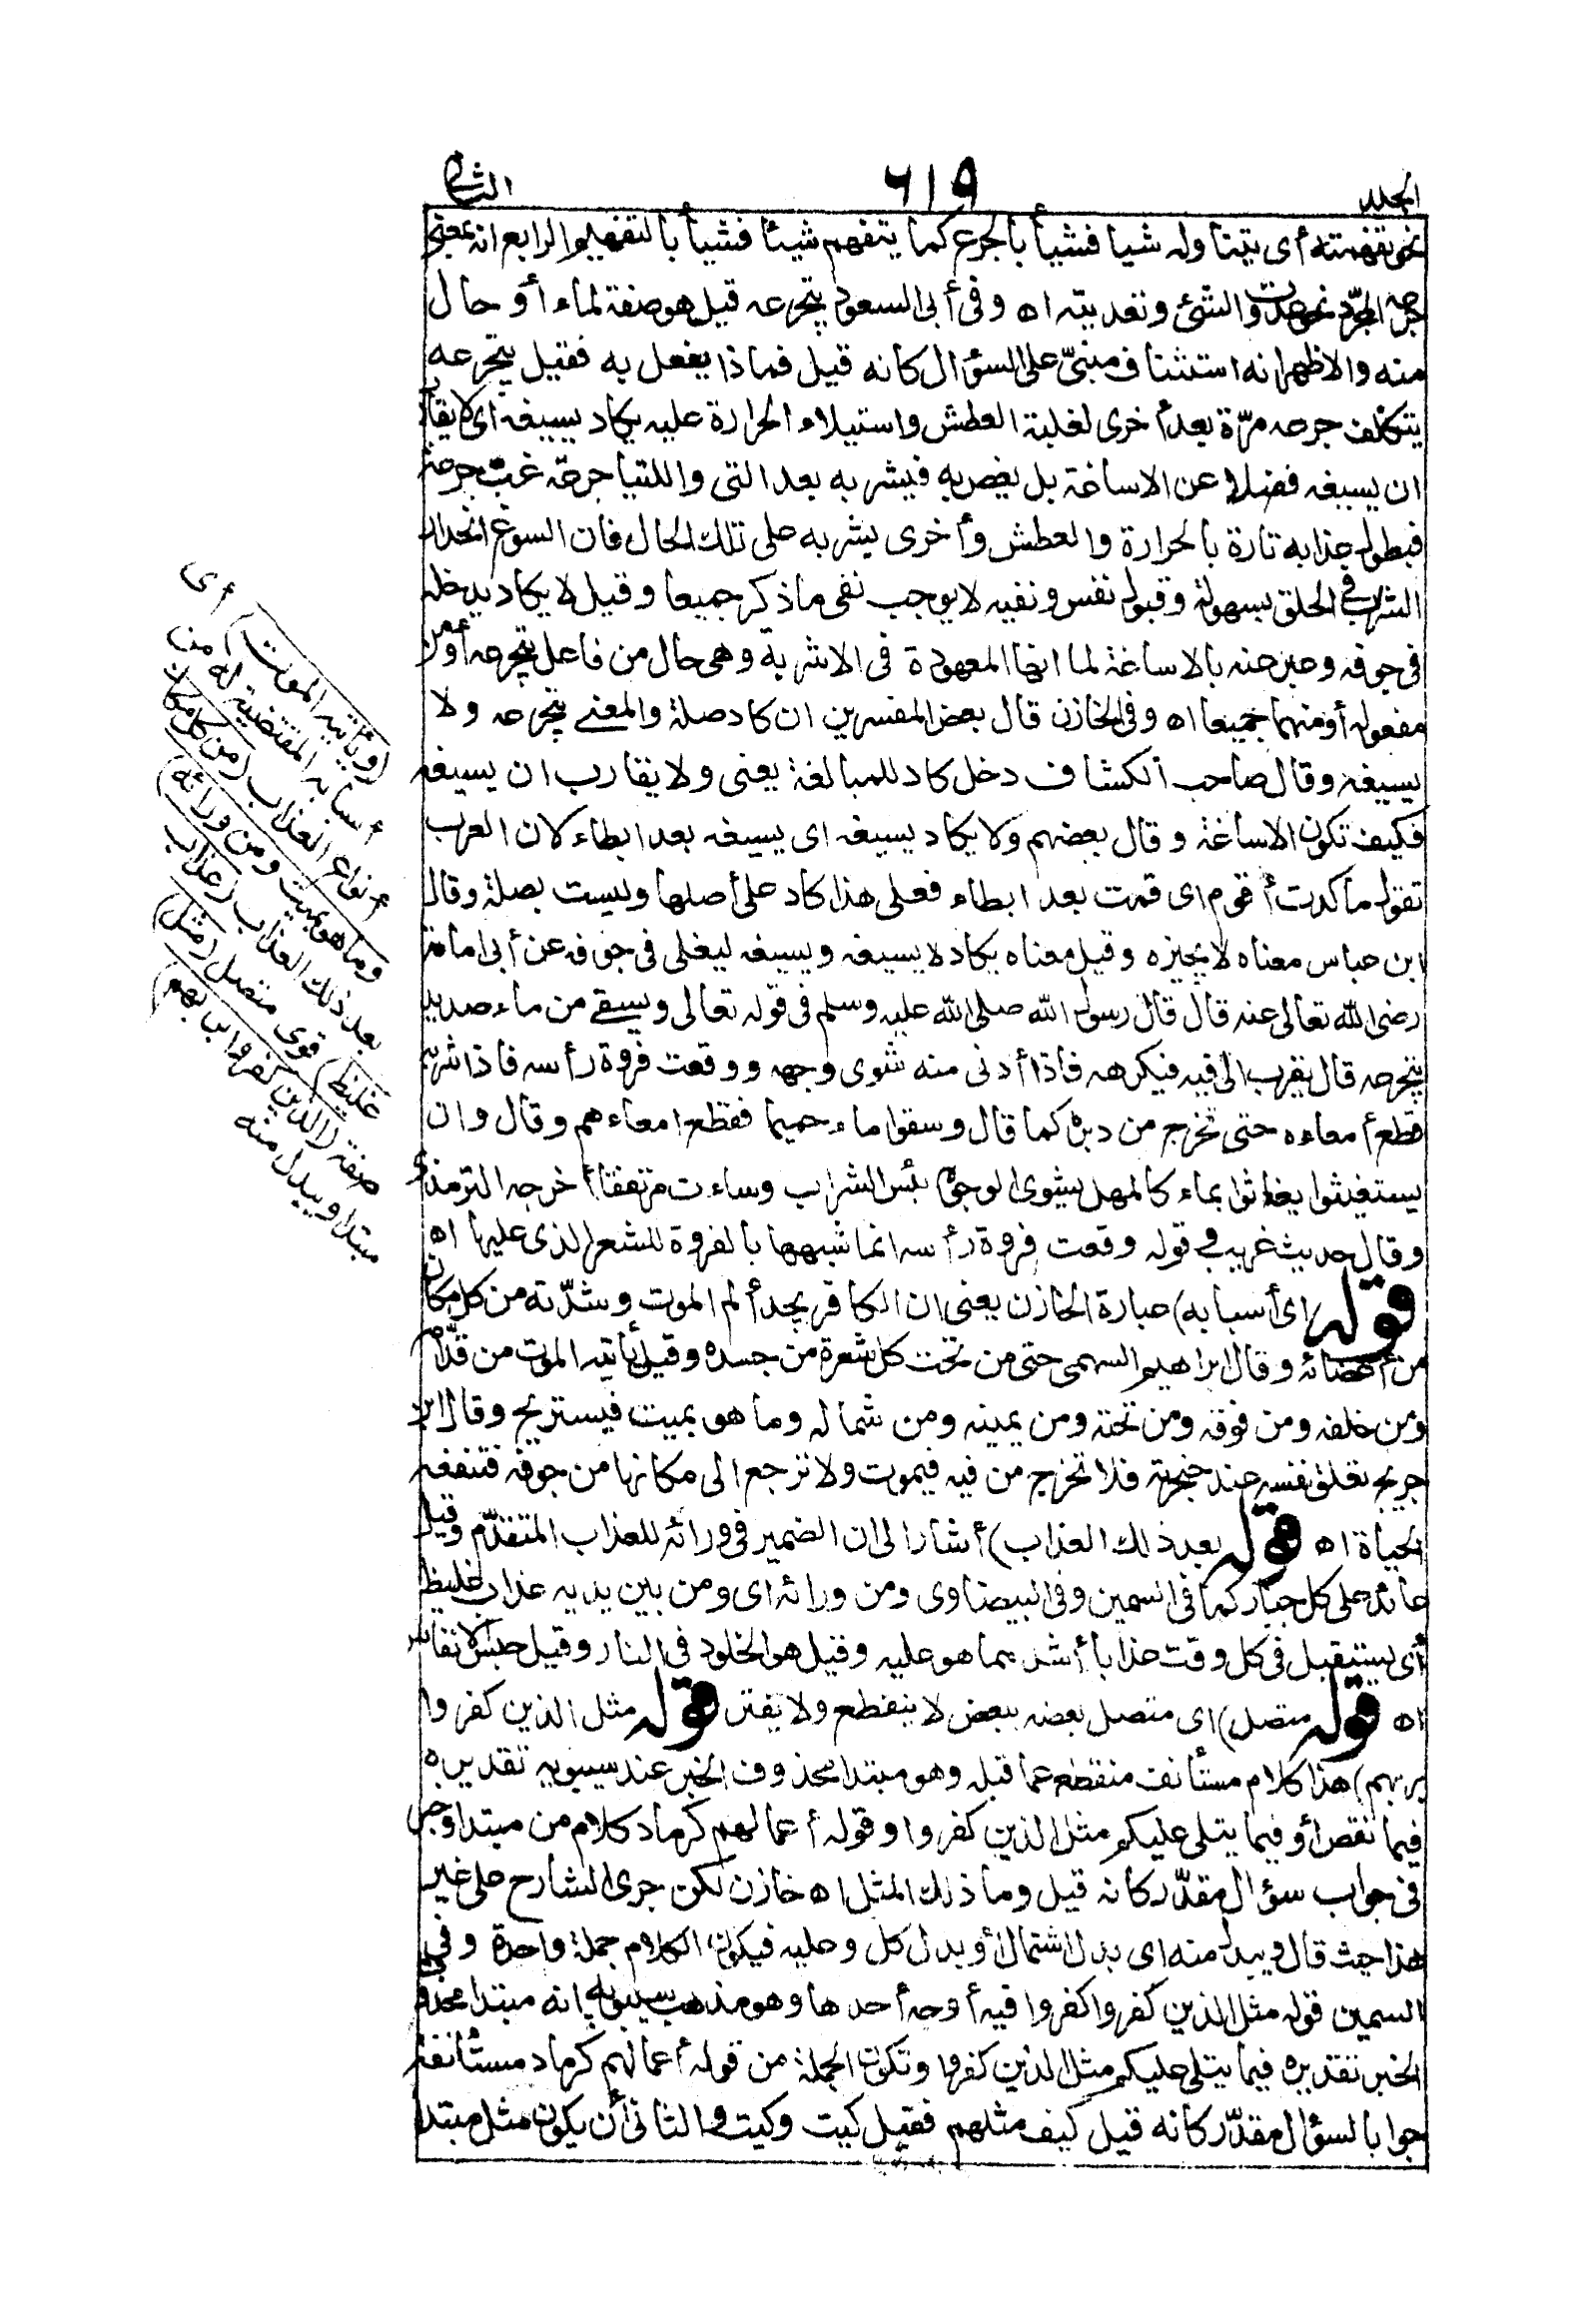 المجلد
٦١٩
الثانى
نحو تفهمته أى يتناوله شيا فشيأ بالجرع كما يتفهم شيئا فشيأ بالتفهيم الرابع انه بمعنى
جرعه المجرّد نحو عدوت الشئ وتعديته اه وفى أبى السعود يتجرعه قيل هو صفة لماء أو حال
منه والاظهر انه استئناف مبنىّ على السؤال كانه قيل فماذا يفعل به فقيل يتجرعه
يتكلف جرعه مرّة بعد أخرى لغلبة العطش واستيلاء الحرارة عليه يكاد يسيغه اى لا يقارب
ان يسيغه فضلا عن الاساغة بل يغص به فيشربه بعد التى واللتيا جرعة غب جرعة
فيطول عذابه تارة بالحرارة والعطش وأخرى يشربه على تلك الحال فان السوغ انحدار
الشراب فى الحلق بسهولة وقبول نفس ونفيه لا يوجب نفى ما ذكر جميعا وقيل لا يكاد يدخله
فى جوفه وعبر عنه بالاساغة لما انها المعهودة فى الاشربة وهى حال من فاعل يتجرعه أو من
مفعوله أو منهما جميعا اه وفى الخازن قال بعض المفسرين ان كاد صلة والمعنى يتجرعه ولا
يسيغه وقال صاحب الكشاف دخل كاد للمبالغة يعنى ولا يقارب ان يسيغه
فكيف تكون الاساغة وقال بعضهم ولا يكاد يسيغه اى يسيغه بعد ابطاء لان العرب
تقول ما كدت أقوم اى قمت بعد ابطاء فعلى هذا كاد على أصلها وليست بصلة وقال
ابن عباس معناه لا يجيزه وقيل معناه يكاد لا يسيغه ويسيغه ليغلى فى جوفه عن أبى امامة
رضى الله تعالى عنه قال قال رسول الله صلى الله عليه وسلم فى قوله تعالى ويسقى من ماء صديد
يتجرعه قال يقرب الى فيه فيكرهه فاذا أدنى منه شوى وجهه ووقعت فروة رأسه فاذا شربه
قطع أمعاءه حتى تخرج من دبره كما قال وسقوا ماء حميما فقطع امعاءهم وقال وان
يستغيثوا يغاثوا بماء كالمهل يشوى الوجوه بئس الشراب وساءت مرتفقا أخرجه الترمذى
وقال حديث غريب فى قوله وقعت فروة رأسه انما شبهها بالفروة للشعر الذى عليها اه
قوله اى أسبابه) عبارة الخازن يعنى ان الكافر يجد ألم الموت وشدّته من كل مكان
من أعضائه وقال ابراهيم السهمى حتى من تحت كل شعرة من جسده وقيل يأتيه الموت من قدّام
ومن خلفه ومن فوقه ومن تحته ومن يمينه ومن شماله وما هو بميت فيستريح وقال ابن
جريج تعلق نفسه عند حنجرته فلا تخرج من فيه فيموت ولا ترجع الى مكانها من جوفه فتنفعه
الحياة اه قوله بعد ذلك العذاب) أشار الى ان الضمير فى ورائه للعذاب المتقدّم وقيل
عائد على كل جبار كما فى السمين وفى البيضاوى ومن ورائه اى ومن بين يديه عذاب غليظ
أى يستقبل فى كل وقت عذابا أشد مما هو عليه وقيل هو الخلود فى النار وقيل حبس الانفاس
اه قوله متصل) اى متصل بعضه ببعض لا ينقطع ولا يفتر قوله مثل الذين كفروا
بربهم) هذا كلام مستأنف منقطع عما قبله وهو مبتدا محذوف الخبر عند سيبويه تقديره
فيما نقص أو فيما يتلى عليكم مثل الذين كفروا وقوله أعمالهم كرماد كلام من مبتدا وخبر
فى جواب سؤال مقدّر كانه قيل وما ذلك المثل اه خازن لكن جرى الشارح على غير
هذا حيث قال ويبدل منه اى بدل اشتمال أو بدل كل وعليه فيكون الكلام جملة واحدة وفى
السمين قوله مثل الذين كفروا كفروا فيه أوجه أحدها وهو مذهب سيبويه انه مبتدا محذوف
الخبر تقديره فيما يتلى عليكم مثل الذين كفروا وتكون الجملة من قوله أعمالهم كرماد مستأنفة
جوابا لسؤال مقدّر كانه قيل كيف مثلهم فقيل كيت وكيت والثانى أن يكون مثل مبتدا
(ويأتيه الموت) أى
أسبابه المقتضية له من
أنواع العذاب (من كل مكان
وما هو بميت ومن ورائه)
بعد ذلك العذاب (عذاب
غليظ) قوى متصل (مثل)
صفة (الذين كفروا بربهم)
مبتدا ويبدل منه